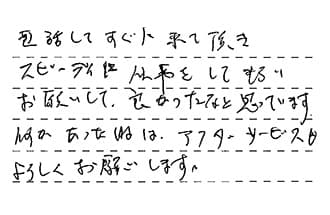 電話してすぐに来て頂き
スピーディに作事をしてもらい
お願いして、良かったなと思っています
何かあった時は、アフターサービスも
よろしくお願いします。